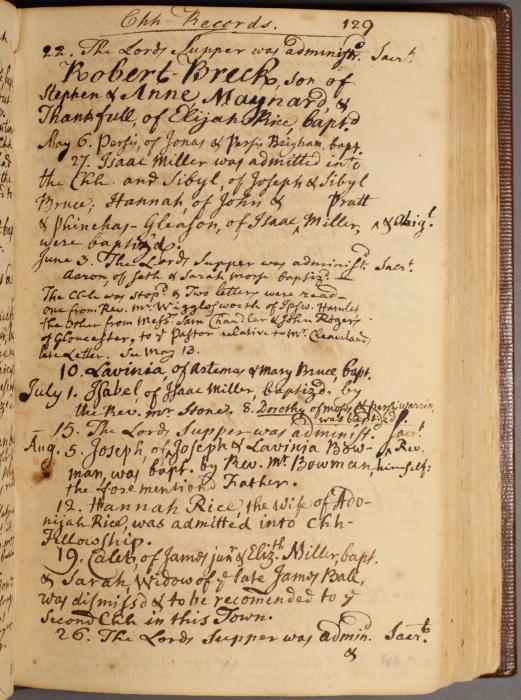 Chh Records. 129
22. The Lords Supper was administr.d Sacr.t
Robert Breck, son of
Stephen & Anne Maynard, &
Thankfull, of Elijah Rice, bapt.d
May 6. Persis, of Jonas & Persis Brigham, bapt.
27. Isaac Miller was admitted into
the Chh. and Sibyl, of Joseph & Sibyl
Bruce, Hannah, of John & Pratt
& Phinehas-Gleason, of Isaac Miller, ^ & Abig.l
were baptiz'd.
June 3. The Lords Supper was administ.d Sacr.t
Aaron, of Seth & Sarah Morse baptiz.d
The Chh was stop.d & Two letters were read—
one from Rev. Mr. Wigglesworth of Ipsw. Hamlet
the Other from Mess.rs Sam Chandler & John Rogers
of Gloucester, to y.e Pastor relative to Mr. Cleaveland
late Letter. See May 13.
10. Lavinia of Artemas & Mary Bruce, bapt.
July 1. Isabel of Isaac Miller baptiz'd, by
the Rev. Mr Stone. 8. Dorothy of Moses & Persis Warrin
was baptiz'd.
15. The Lords Supper was administ.d Sacr.t
Aug. 5. Joseph, of Joseph & Lavinia Bow- ^ Rev.
man, was bapt. by Rev. Mr. Bowman, himself:
the forementiond Father.
12. Hannah Rice, the Wife of Ado-
nijah Rice, was admitted into Chh-
Fellowship.
19. Caleb, of James jun.r & Eliz.th Miller, bapt.
& Sarah, Widow of y.e late James Ball,
was dismiss'd & to be recomended to y.e
Second Chh in this Town.
26. The Lords Supper was admin.d Sacr.t
&